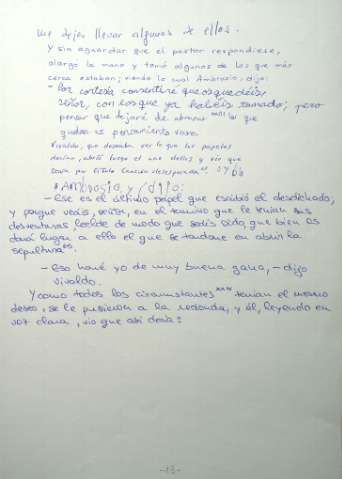 me dejes llevar algunos de ellos.
Y sin aguardar que el pastor respondiese,
alargó la mano y tomó algunos de los que más
cerca estaban; viendo lo cual Ambrosio, dijo:
- Por cortesía consentiré que os quedéis,
señor, con los que ya habéis tomado; pero
pensar que dejaré de abrasar los que
quedan es pensamiento vano.
Vivaldo, que deseaba ver lo que los papeles
decían, abrió luego el uno dellos y vio que
tenía por título Canción desesperada.
Ambrosio y dijo:
- Ese es el último papel que escribió el desdichado,
y porque veáis, señor, en el término que le tenían sus
desventuras leelde de modo que seáis oído, que bien os
dará lugar a ello el que se tardare en abrir la
sepultura
- Eso haré yo de muy buena gana, - dijo
Vivaldo.
Y como todos los circunstantes tenían el mismo
deseo, se le pusieron a la redonda, y él, leyendo en
voz clara, vio que así decía:
-13-